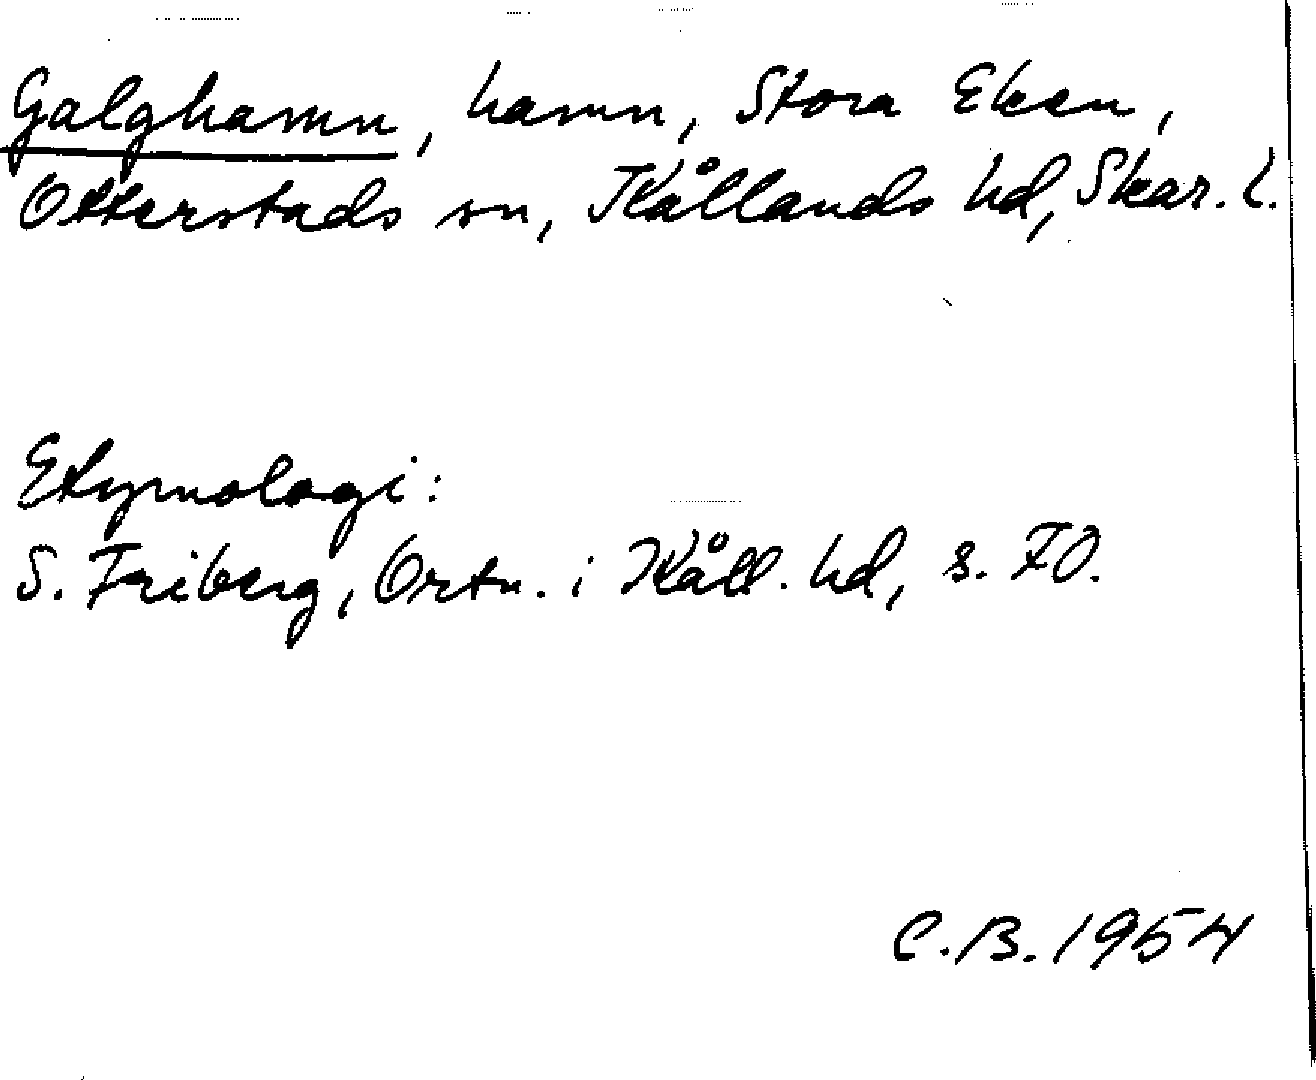 Galghamn, hamn, Stora Eken,
Otterstads sn, Kållands hd, Skar. l.
Etymologi:
S. Friberg, Ortn. i Kåll. hd, s. 70.
C.B. 1954